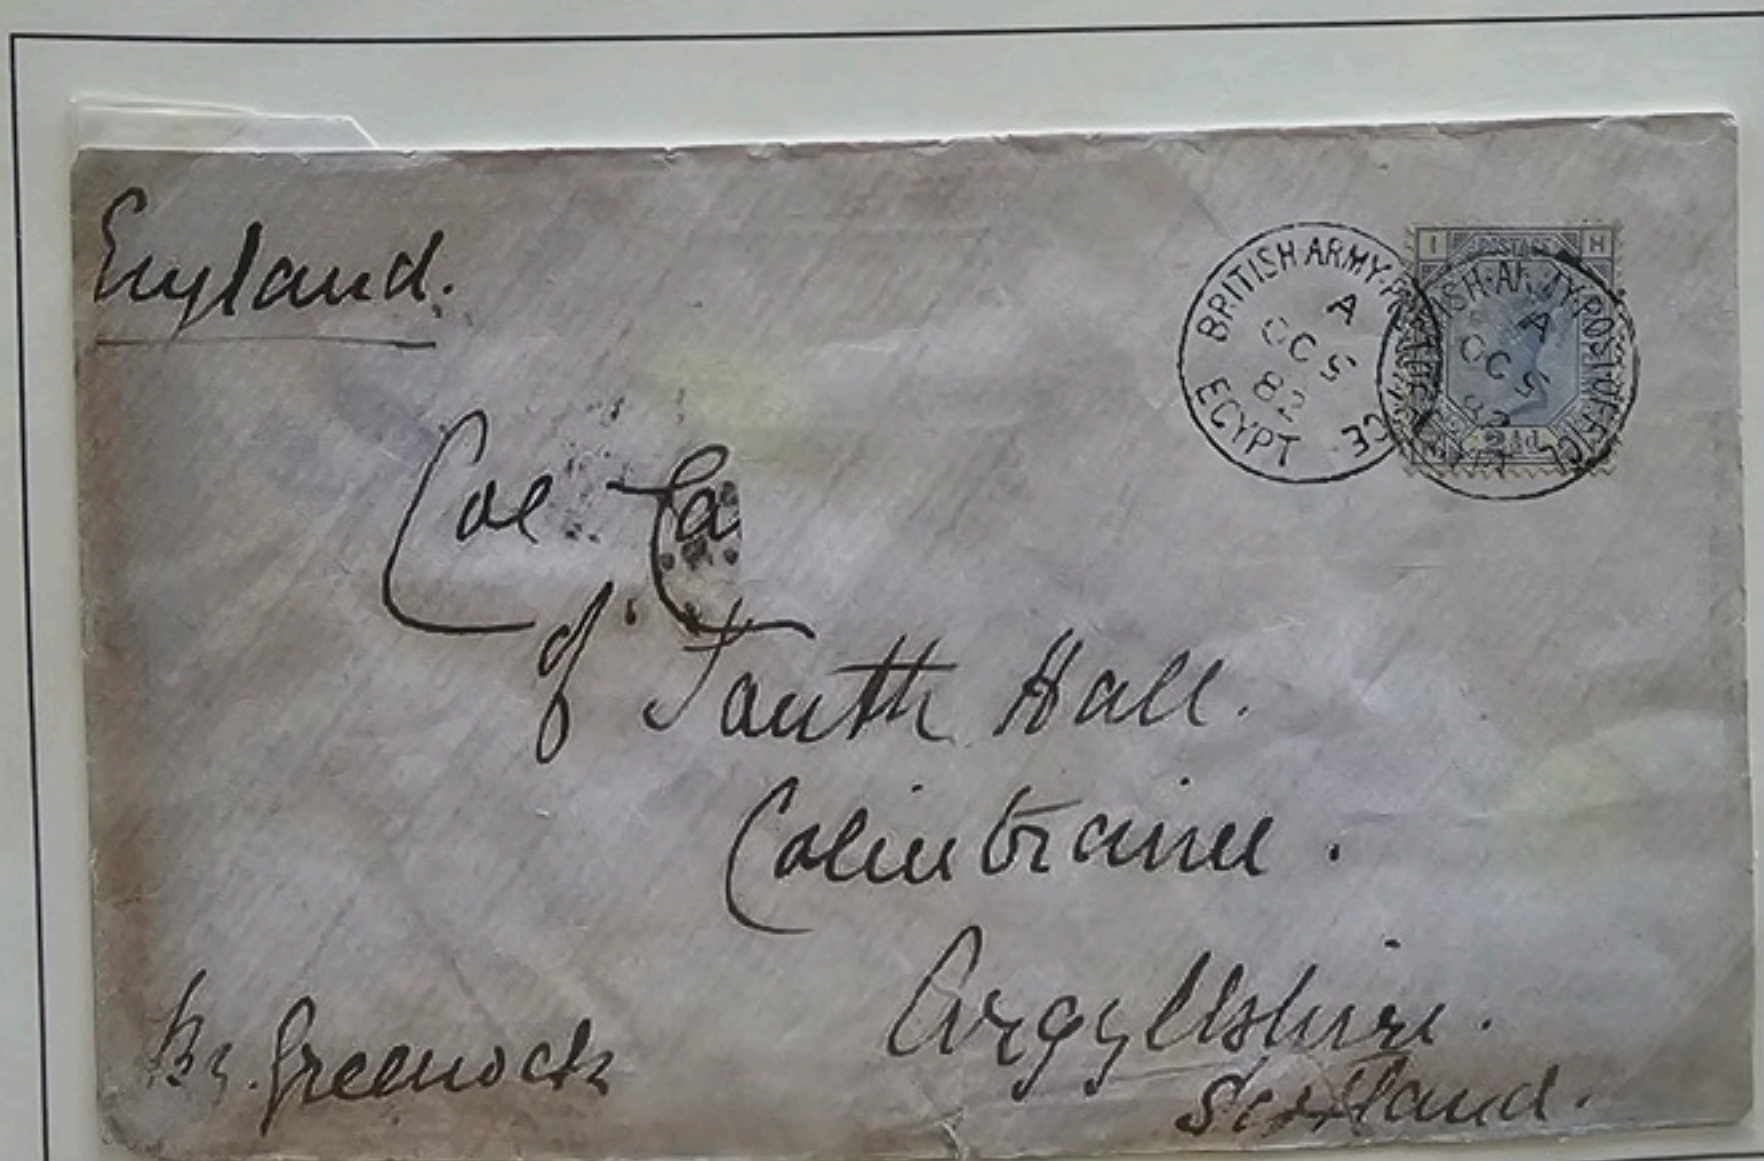 England.
BRITISH ARMY POST OFFICE
A
OC 5
82
EGYPT
I POSTAGE H
ISH ARMY POST OFFICE
A
OC 5
82
2½d
Col Ca
of South Hall.
Colintraive.
Argyllshire.
Scotland.
By. Greenock